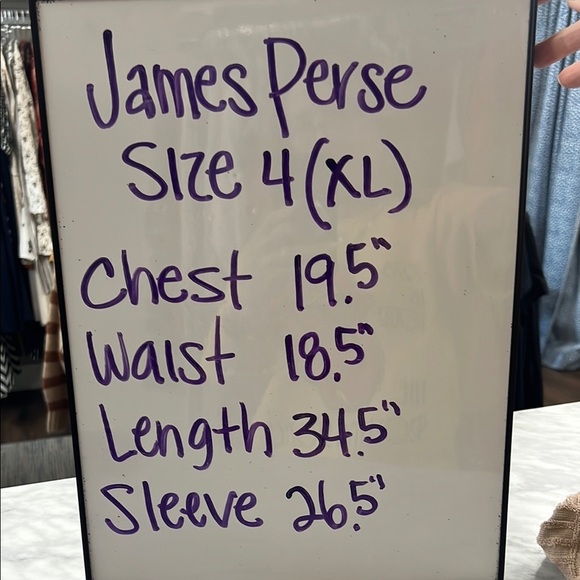 James Perse
Size 4 (XL)
Chest 19.5"
Waist 18.5"
Length 34.5"
Sleeve 26.5"